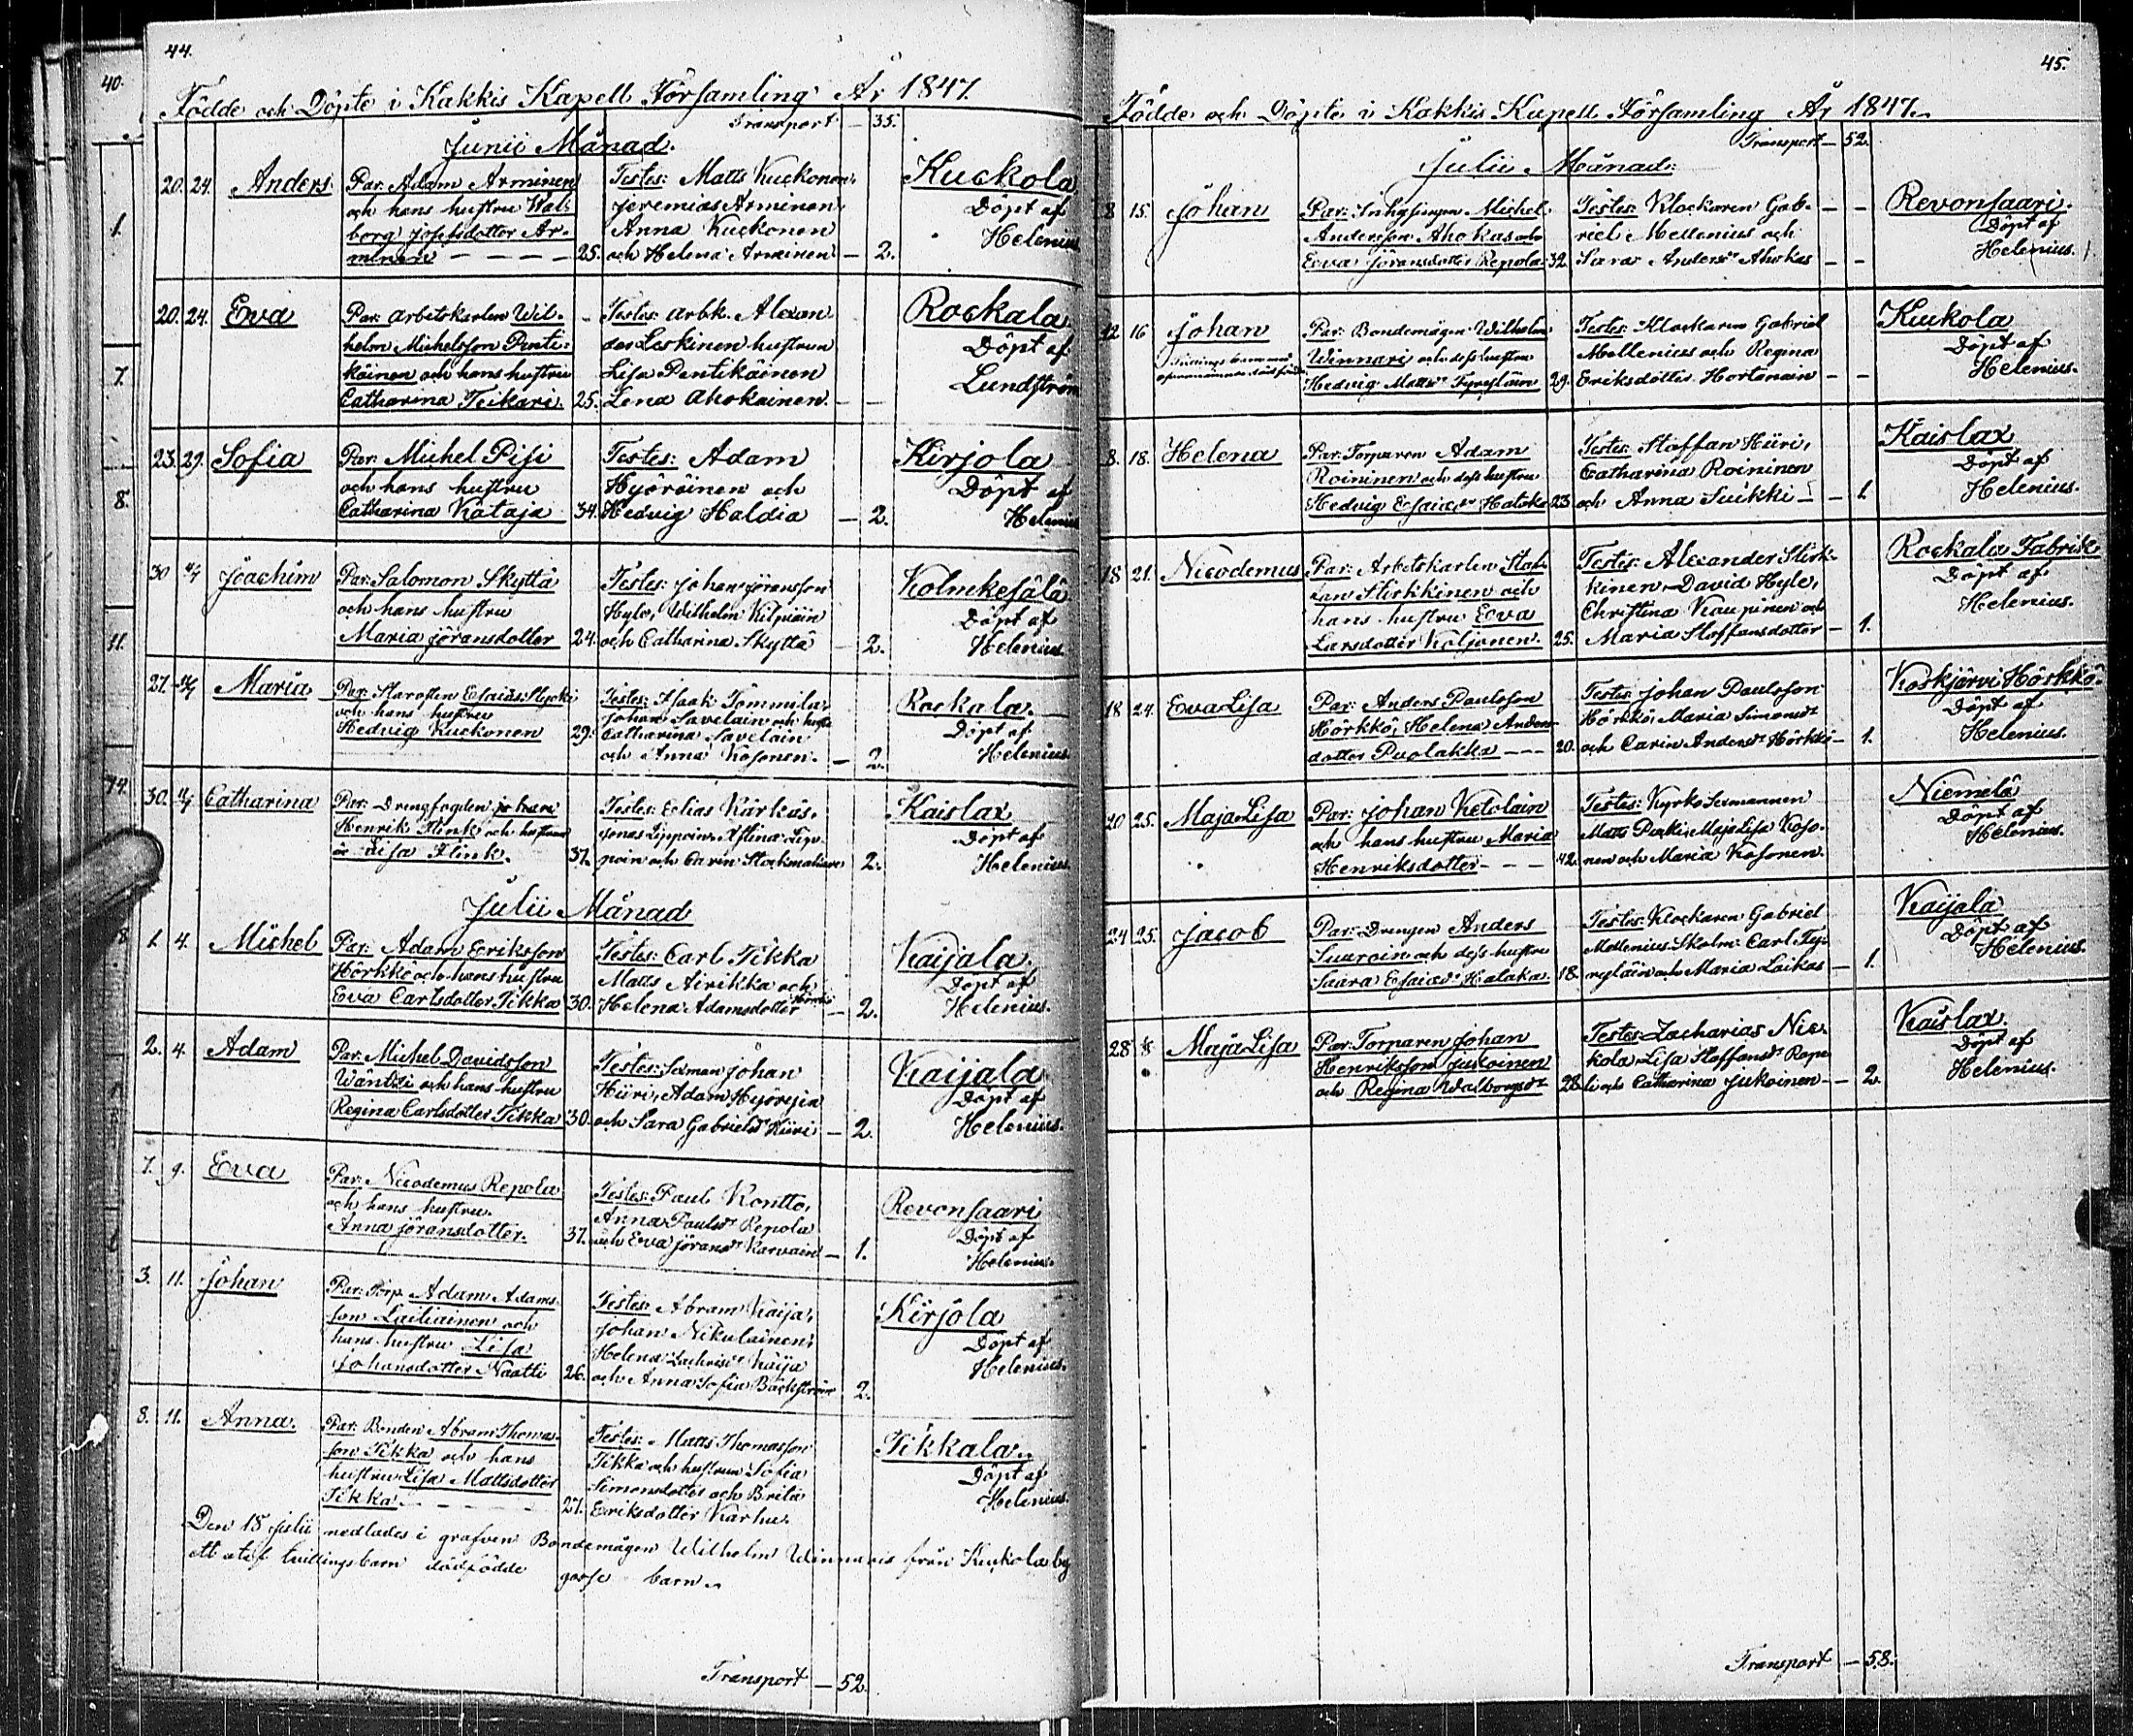 44.
40.
Födde och Döpte i Kakkis Kapell Församling År 1847.
Transport — 35.
Junii Månad.
20. 24. Anders Par: Adam Arminen Testes: Matts Kuckonen, Kuckola
och hans hustru Wal- Jeremias Arminen, Döpt af
borg Josefsdotter Ar- Anna Kuckonen Helenius
minen — — — — 25. och Helena Arminen — 2.
20. 24. Eva Par: arbetskarlen Wil- Testes: arbk. Alexan Rockala
helm Michelsson Penti- der Leskinen hustrun Döpt af
käinen och hans hustru Lisa Pentikäinen Lundström
Catharina Teikari. 25. Lena Ahokainen. — —
23. 29. Sofia Par: Michel Pisi Testes: Adam Kirjola
och hans hustru Hyöräinen och Döpt af
Catharina Kataja 34. Hedvig Haldia — 2. Helenius
30 4/7 Joachim Par: Salomon Skyttä Testes: Johan Jöransson Kolmikesälä
och hans hustru Hyle, Wilhelm Kilpiäin Döpt af
Maria Jöransdotter 24. och Catharina Skyttä — 2. Helenius.
27. Maria Par: Starosten Esaias och hans hustru Testes: Isaak Tommila, Rockala.
Johan Savelain och hustr Döpt af
Hedvig Kuckonen 29. Catharina Savelain Helenius
och Anna Kosonen. — 2.
30. 4/7 Catharina Par: Drengfogden Johan Testes: Elias Kärkäs, Kaislax
Henrik Flink och hustrun Jonas Lippoin, Döpt af
Lisa Flink. 37. poin och Carin 2. Helenius
Julii Månad
1. 4. Michel Par: Adam Eriksson Testes: Carl Tikka Kaijala.
Hörkkö och hans hustru Matts Airikka och Döpt af
Eva Carlsdotter Tikka 30. Helena Adamsdotter — 2. Helenius.
2. 4. Adam Par: Michel Davidsson Testes: Sexman Johan Kaijala
Wäntsi och hans hustru Hüri, Adam Hyöryjin Döpt af
Regina Carlsdotter Tikka 30. och Sara Gabrielsdr Hüri — 2. Helenius.
7. 9. Eva Par: Nicodemus Repola Testes: Paul Kontto, Revonsaari
och hans hustru Anna Paulsdr Repola Döpt af
Anna Jöransdotter. 37. och Eva Jöransdr Karvain — 1. Helenius.
3. 11. Johan Par: Torp. Adam Adams- Testes: Abram Kaija, Kirjola
son Lailiainen och Johan Nikulainen, Döpt af
hans hustru Lisa Helena Kaija Helenius.
Johansdotter Naatti 26. och Anna Sofia Bäckström 2.
8. 11. Anna. Par: Bonden Abram Thomas- Testes: Matts Thomasson Tikkala.
son Tikka och hans Tikka och hustrun Sofia Döpt af
hustru Lisa Mattsdotter Simonsdotter och Brita Helenius.
Tikka. — — — 27. Eriksdotter Karhu.
Den 18 Julii nedlades i grafven Bondemågen Wilhelm Winnaris från Kuckola by
ett utaf tvillingsbarn dödfödde gosse barn.
Transport — 52.
45.
Födde och Döpte i Kakkis Kapell Församling År 1847.
Transport — 52.
Julii Månad:
8 15. Johan Par: Michel Testes: Klockaren Gab- — — Revonsaari.
Andersson Ahokas och riel Mellenius och Döpt af
Eeva Jöransdotter Repola 32. Sara Andersdr Ahokas — — Helenius.
12 16 Johan Par: Bondemågen Wilhelm Testes: Klockaren Gabriel Kuckola
Winnari och dess hustru Mellenius och Regina Döpt af
Hedvig Mattsdr 29. Eriksdotter Hortanain — — Helenius.
8. 18. Helena Par: Torparen Adam Testes: Staffan Hüri, Kaislax
Roininen och dess hustru Catharina Roininen Döpt af
Hedvig Esaiasdr Hataka 23 och Anna Suikki — — 1. Helenius.
18 21. Nicodemus Par: Arbetskarlen Staf- Testes: Alexander Stirk- Rockala Fabrik
fan Stirkkinen och kinen, David Hyle, Döpt af
hans hustru Eeva Christina Kaupinen och Helenius.
Larsdotter Koljonen. 25. Maria Staffansdotter — 1.
18 24. Eva Lisa Par: Anders Paulsson Testes: Johan Paulsson Koskjärvi Hörkkö
Hörkkö, Helena Anders- Hörkkö, Maria Simonsdr Döpt af
dotter Puolakka — — — 20. och Carin Andersdr Hörkkö — 1. Helenius.
20 25. Maja Lisa Par: Johan Ketolain Testes: Kyrko Sexmannen Niemelä
och hans hustru Maria Matts Purki, Maja Lisa Koso- Döpt af
Henriksdotter — — — 42. nen och Maria Kosonen. Helenius.
24 25. Jacob Par: Drengen Anders Testes: Klockaren Gabriel Kaijala
Suuroin och dess hustru Mellenius, Skolm: Carl Ty- Döpt af
Saara Esaiasdr Hataka. 18. ryläin och Maria Laikas — 1. Helenius.
28 1/8 Maja Lisa Par: Torparen Johan Testes: Zacharias Nic- Kaislax.
Henriksson Jukoinen kola, Lisa Staffansdr Döpt af
och Regina Walborgsdr 28 och Catharina Jukoinen — — 2. Helenius.
Transport — 58.